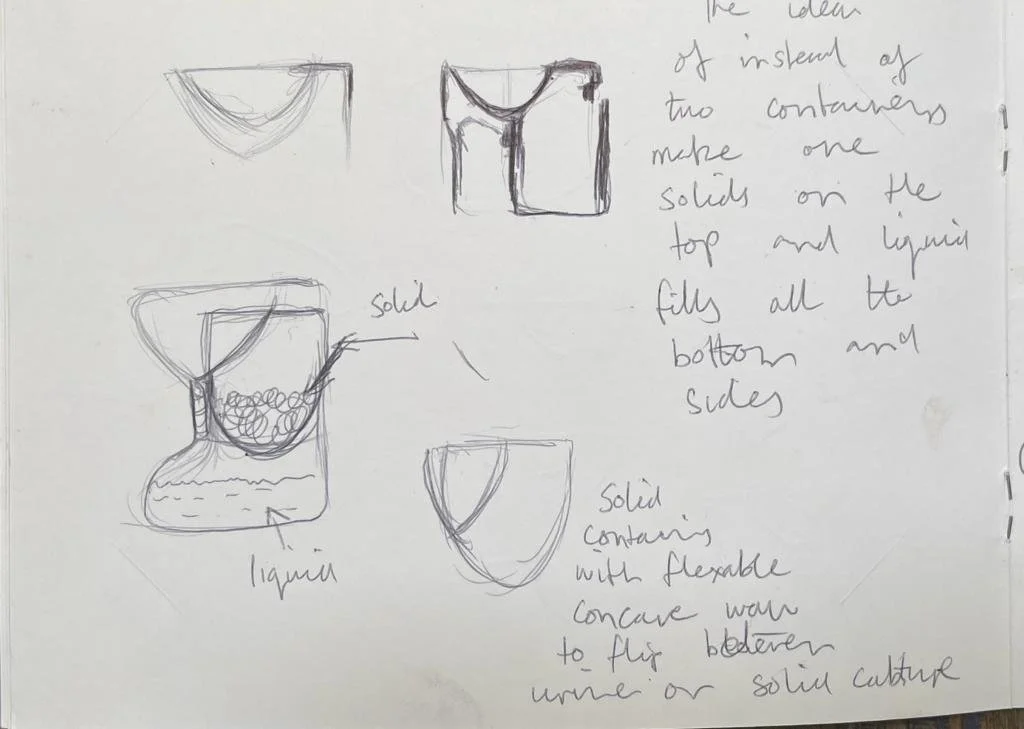 The idea
of instead of
two containers
make one
solids on the
top and liquid
fills all the
bottom and
sides
solid
liquid
Solid
contains
with flexable
concave wall
to flip between
urine or solid cabture